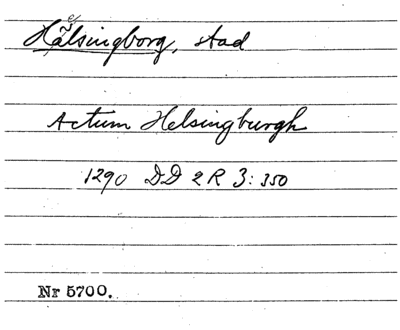 Hälsingborg, stad
Actum Helsingburgh
1290 DD 2 R 3: 350
Nr 5700.